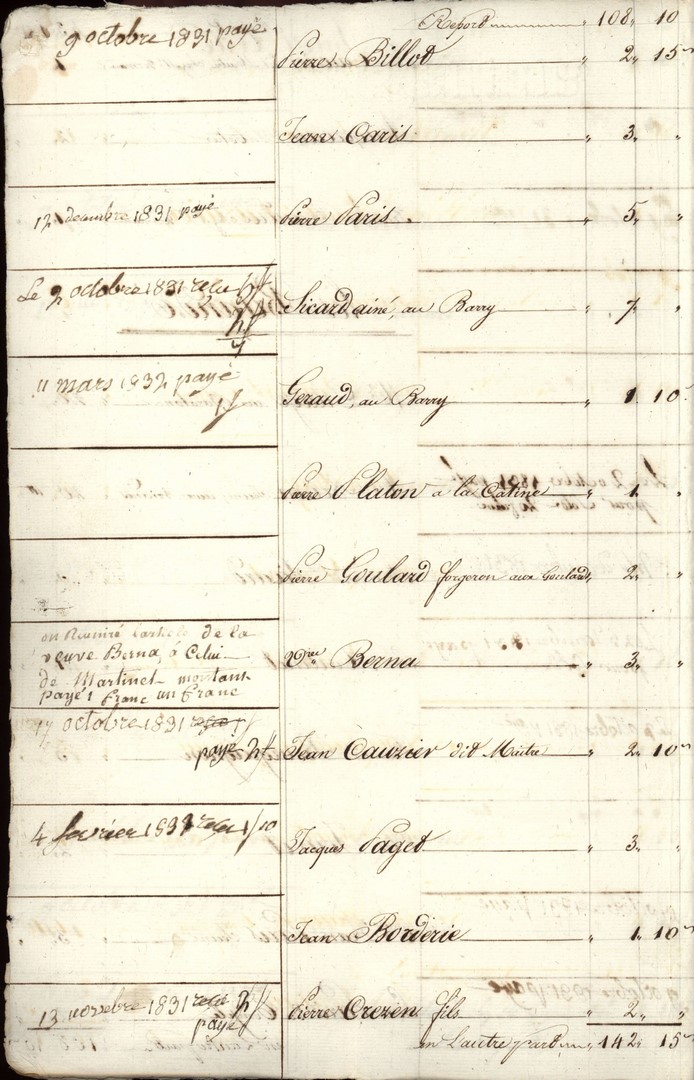 Report 108 " 10
9 octobre 1831 payé
Pierre Billot " 2 " 15
Jean Caris " 3 "
12 decembre 1831 payé
Pierre Paris " 5 " "
Le 2 octobre 1831
Sicard ainé, au Barry " 7 " "
11 mars 1832 payé
Geraud, au Barry " 1 10
Pierre Platon a la Catine " 1 " "
Pierre Goulard forgeron aux Goulards " 2 " "
on Reuniré l'article de la
veuve Berna, a Celui
de Martinet montant
payé 1 franc un franc
Vve Berna " 3 " "
17 octobre 1831
payé 2
Jean Cauzier dit Maitre " 2 " 10
4 fevrier 1832 1/10
Jacques Paget " 3 " "
Jean Borderie " 1 " 10
13 novebre 1831
payé
Pierre Crezen fils " 2 " "
en L'autre part " 142 " 15